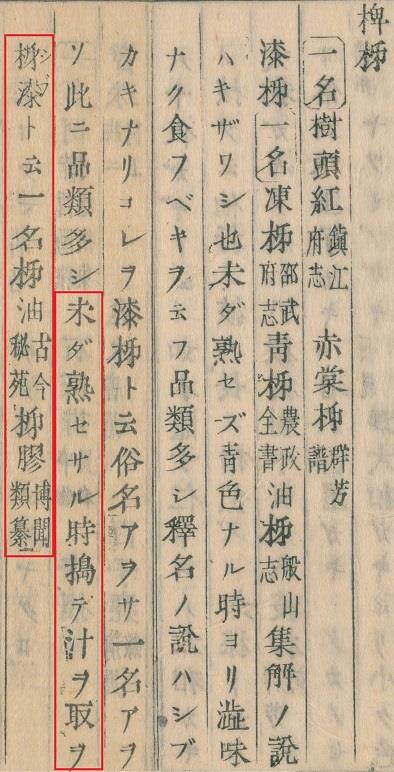 椑柹
一名樹頭紅鎮江府志 赤棠柹群芳譜
漆柹一名凍柹邵武府志青柹農政全書油柹般山志集解ノ說
ハキザワシ也未ダ熟セズ青色ナル時ヨリ澁味
ナク食フベキヲ云フ品類多シ釋名ノ說ハシブ
カキナリコレヲ漆柹ト云俗名アヲサ一名アヲ
ソ此ニ品類多シ未ダ熟セサル時搗テ汁ヲ取ヲ
柹漆シブト云一名柹油古今秘苑柹膠博聞類纂